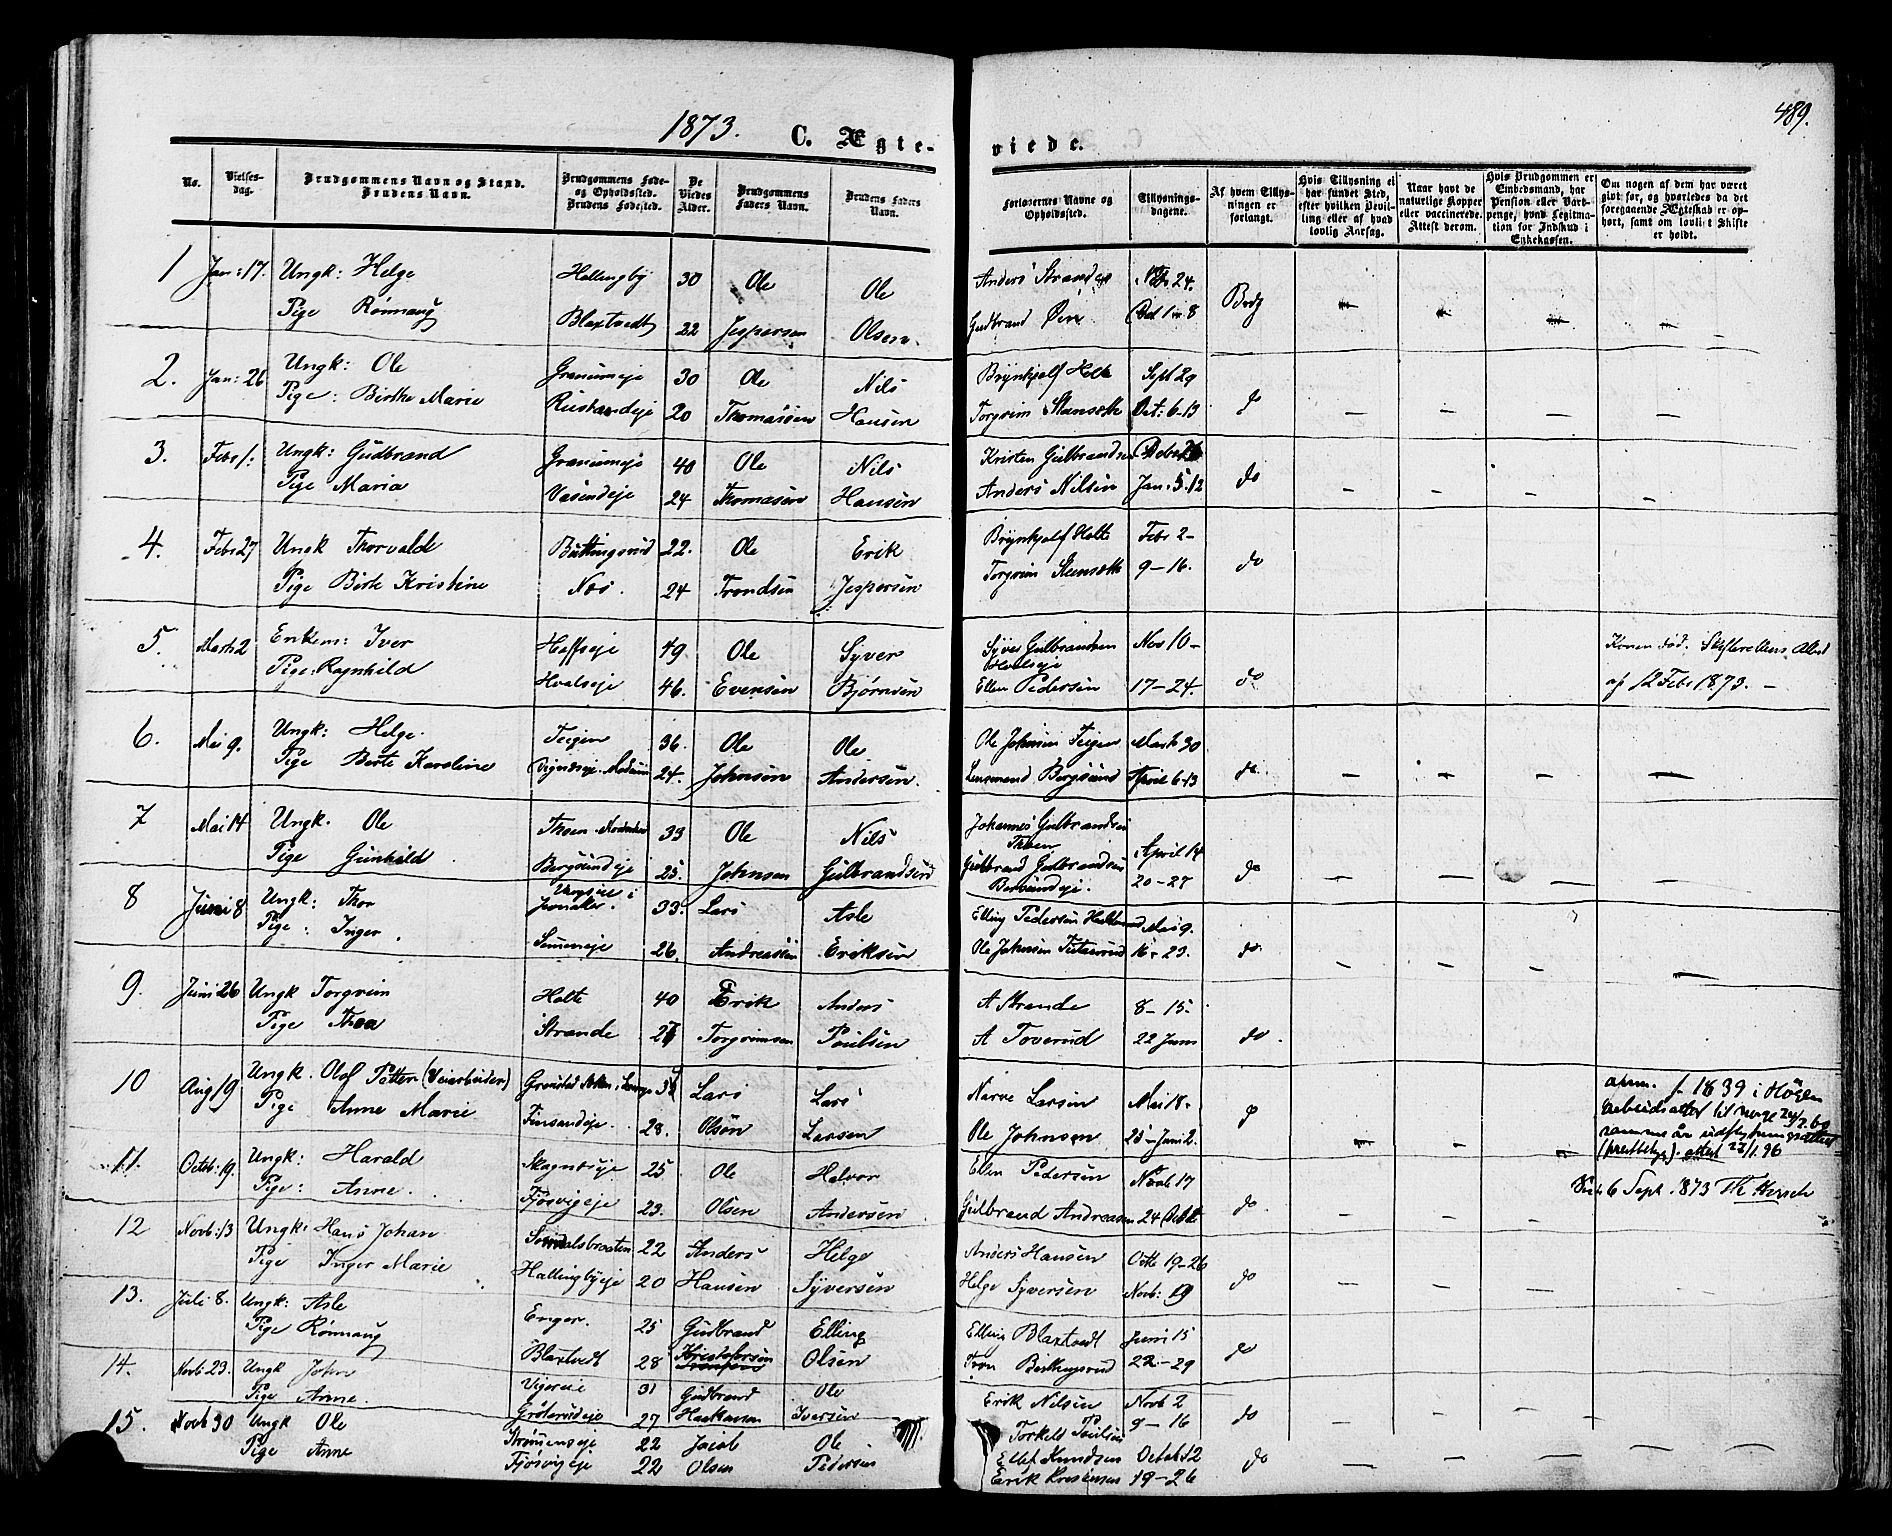 489.
1873. C. Ægte-viede.
No.
Vielses-dag.
Brudgommens Navn og Stand.
Brudens Navn.
Brudgommens Føde-
og Opholdssted.
Brudens Fødested.
De
Viedes
Alder.
Brudgommens
Faders Navn.
Brudens Faders
Navn.
Forlovernes Navne og
Opholdssted.
Tillysnings-
dagene.
Af hvem Tillys-
ningen er
forlangt.
Hvis Tillysning ei
har fundet Sted,
efter hvilken Bevil-
ling eller af hvad
lovlig Aarsag.
Naar havt de
naturlige Kopper
eller vaccinerede.
Attest derom.
Hvis Brudgommen er
Embedsmand, har
Pension eller Vart-
penge, hvad Legitima-
tion for Indskud i
Enkekassen.
Om nogen af dem har været
givt før, og hvorledes da det
foregaaende Ægteskab er op-
hørt, samt om lovligt Skifte
er holdt.
1 Jan: 17. Ungk: Helge Hallingby 30 Ole Ole Anders Strande 24.
Pige Rønnaug Blaxtvedt 22 Jespersen Olsen. Gudbrand 1 8 Brdg
2. Jan: 26 Ungk: Ole Granumeje 30 Ole Nils Brynhjelf Holte Sept 29
Pige: Birthe Marie 20 Thomassen Hansen Torgrim Stensæth Oct: 6-13 do
3. Febr 1: Ungk: Gudbrand Granumeje 40 Ole Nils Kristen Gulbrandsen Debr 26
Pige Maria Vasendeje 24 Thomasen Hansen Anders Nilsen Jan: 5-12 do
4. Febr 27 Ungk Thorvald Buttingsrud 22. Ole Erik Brynhjelf Holte Febr 2-
Pige Birte Kristine Næs. 24 Trondsen Jespersen Torgrim Steensæth 9-16. do
5. Marts 2 Enkem: Iver Hoffseje 49. Ole Syver Syver Gulbrandsen Nov 10- Konen død. Skifterettens Attest
Hvalseje
Pige: Ragnhild Hvalseje 46. Evensen Bjørnsen Ellen Pedersen 17-24. do af 12 Febr 1873. -
6. Mai 9. Ungk: Helge. Teigen 36. Ole Ole Ole Johnsen Teigen Marts 30
Pige Berte Karoline Vigerseje. Modum 24. Johnsen Andersen. Lensmand Bergsund April 6-13 do.
7 Mai 14 Ungk. Ole Thoen. Norderhov 33 Ole Nils Johannes Gulbrandsen April 14
Thoen
Pige Gunhild Bergsundeje 25. Johnsen Gulbrandsen Gulbrand Gulbrandsen 20-27 do
Bersundeje.
8 Juni 8 Ungk: Thor Jevnaker. 33. Lars Asle Elling Pedersen Mai 9.
Pige: Inger. 26. Andreassen Eriksen Ole Johnsen 16-23. do
9. Juni 26 Ungk Torgrim Holte 40 Erik Anders A Strande 8-15.
Pige Thea Strande 27 Torgrimsen Poulsen A Toverud 22 Juni do.
10 Aug 19 Ungk. Olof Petter (Veiarbeider) Lars Lars Nærve Larsen Mai 18-
Pige Anne Marie Finsandeje. 28. Olsön Larsen Ole Johnsen 25-Juni 2. do
1839 i
til Norge 24/2 69
attest 22/1.96
6 Sept. 1873
11. Octob: 19. Ungk: Harald Skagnæseje 25 Ole Halvor Ellen Pedersen Novb 17
Pige: Anne. Fjøsvigeje 23. Olsen Andersen Gulbrand Andreasen 24 Debr 1 do.
12 Novb: 13 Ungk: Hans Johan Somdalsbraaten 22 Anders Helge Anders Hansen Octb 19-26
Pige Inger Marie Hallingbyeje 20 Hansen Syversen Helge Syversen Novb: 19 do
13. Juli 8. Ungk: Asle Enger. 25 Gudbrand Elling Elling Blaxtvedt Juni 15
Pige Rønnaug Blaxtvedt 28 Kristofersen Olsen 22-29 do
14. Novb: 23. Ungk John 31 Gudbrand Ole Erik Nilsen Novb 2
Pige Anne. 27 Haakensen Iversen Torkeld Poulsen 9-16 do
15. Novb 30 Ungk Ole Strømenseje 22 Jacob Ole Ellef Knudsen Octob 12
Pige Anne Fjøsvigeje 22 Olsen Pedersen Erik Kristensen 19-26 do